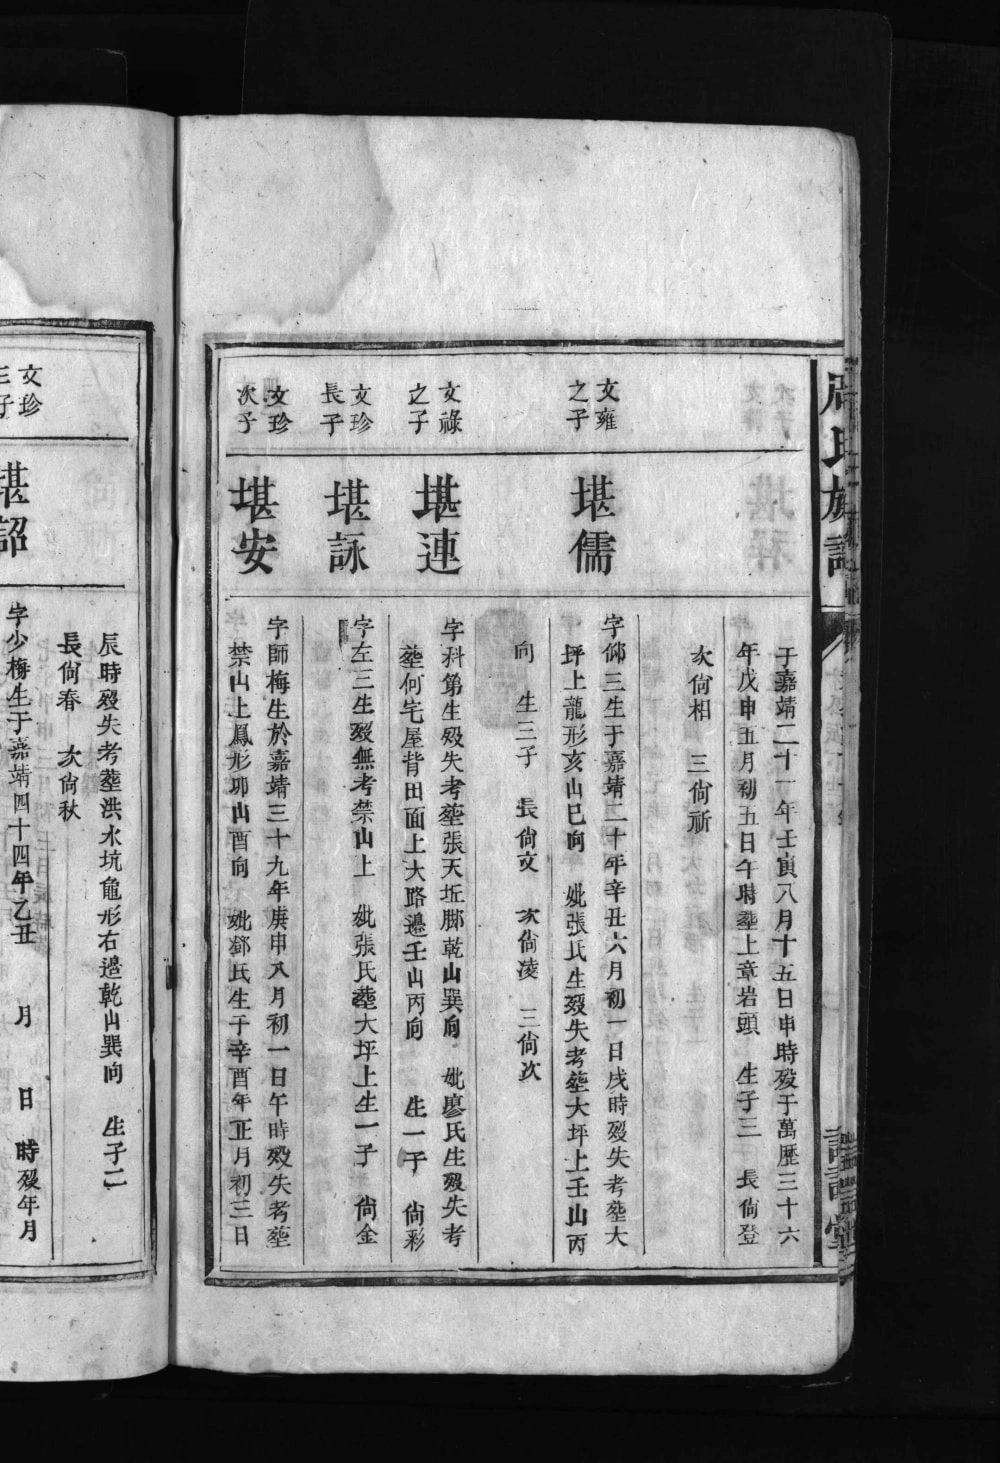 氏族譜
于嘉靖二十一年壬寅八月十五日申時歿于萬歷三十六
年戊申五月初五日午時塟上章岩頭　生子三　長尙登
次尙相　三尙祈
文雍
之子
堪儒
字仰三生于嘉靖二十年辛丑六月初一日戌時歿失考塟大
坪上龍形亥山巳向　妣張氏生歿失考塟大坪上壬山丙
向　生三子　長尙文　次尙凌　三尙次
文祿
之子
堪連
字科第生歿失考塟張天坵脚乾山巽向　妣廖氏生歿失考
塟何宅屋背田面上大路邊壬山丙向　生一子　尙彩
文珍
長子
堪詠
字左三生歿無考禁山上　妣張氏塟大坪上生一子　尙金
文珍
次子
堪安
字師梅生於嘉靖三十九年庚申八月初一日午時歿失考塟
禁山上鳳形卯山酉向　妣鄧氏生于辛酉年正月初三日
辰時歿失考塟洪水坑龜形右邊乾山巽向　生子二
長尙春　次尙秋
文珍
三子
堪詔
字少梅生于嘉靖四十四年乙丑　月　日　時歿年月